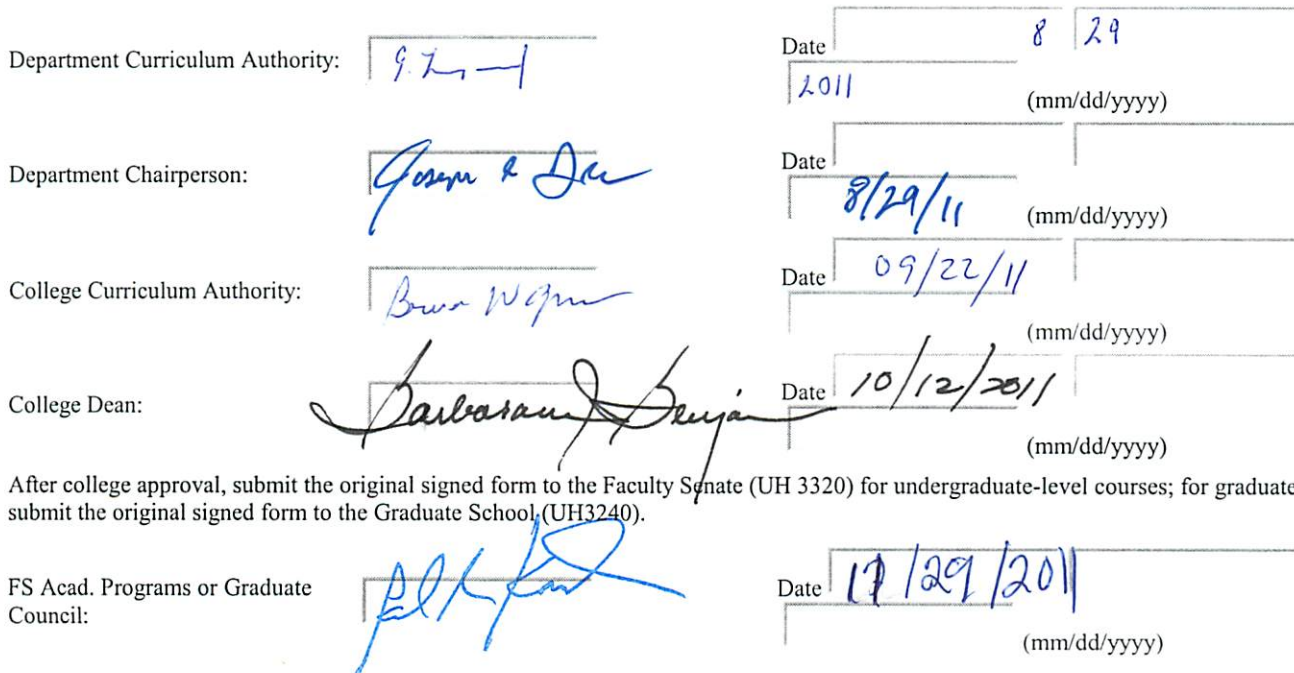 Department Curriculum Authority: Date 8 29
2011 (mm/dd/yyyy)
Department Chairperson: Joseph Date
8/29/11 (mm/dd/yyyy)
College Curriculum Authority: Date 09/22/11
(mm/dd/yyyy)
College Dean: Date 10/12/2011
(mm/dd/yyyy)
After college approval, submit the original signed form to the Faculty Senate (UH 3320) for undergraduate-level courses; for graduate
submit the original signed form to the Graduate School (UH3240).
FS Acad. Programs or Graduate Date /29/2011
Council:
(mm/dd/yyyy)